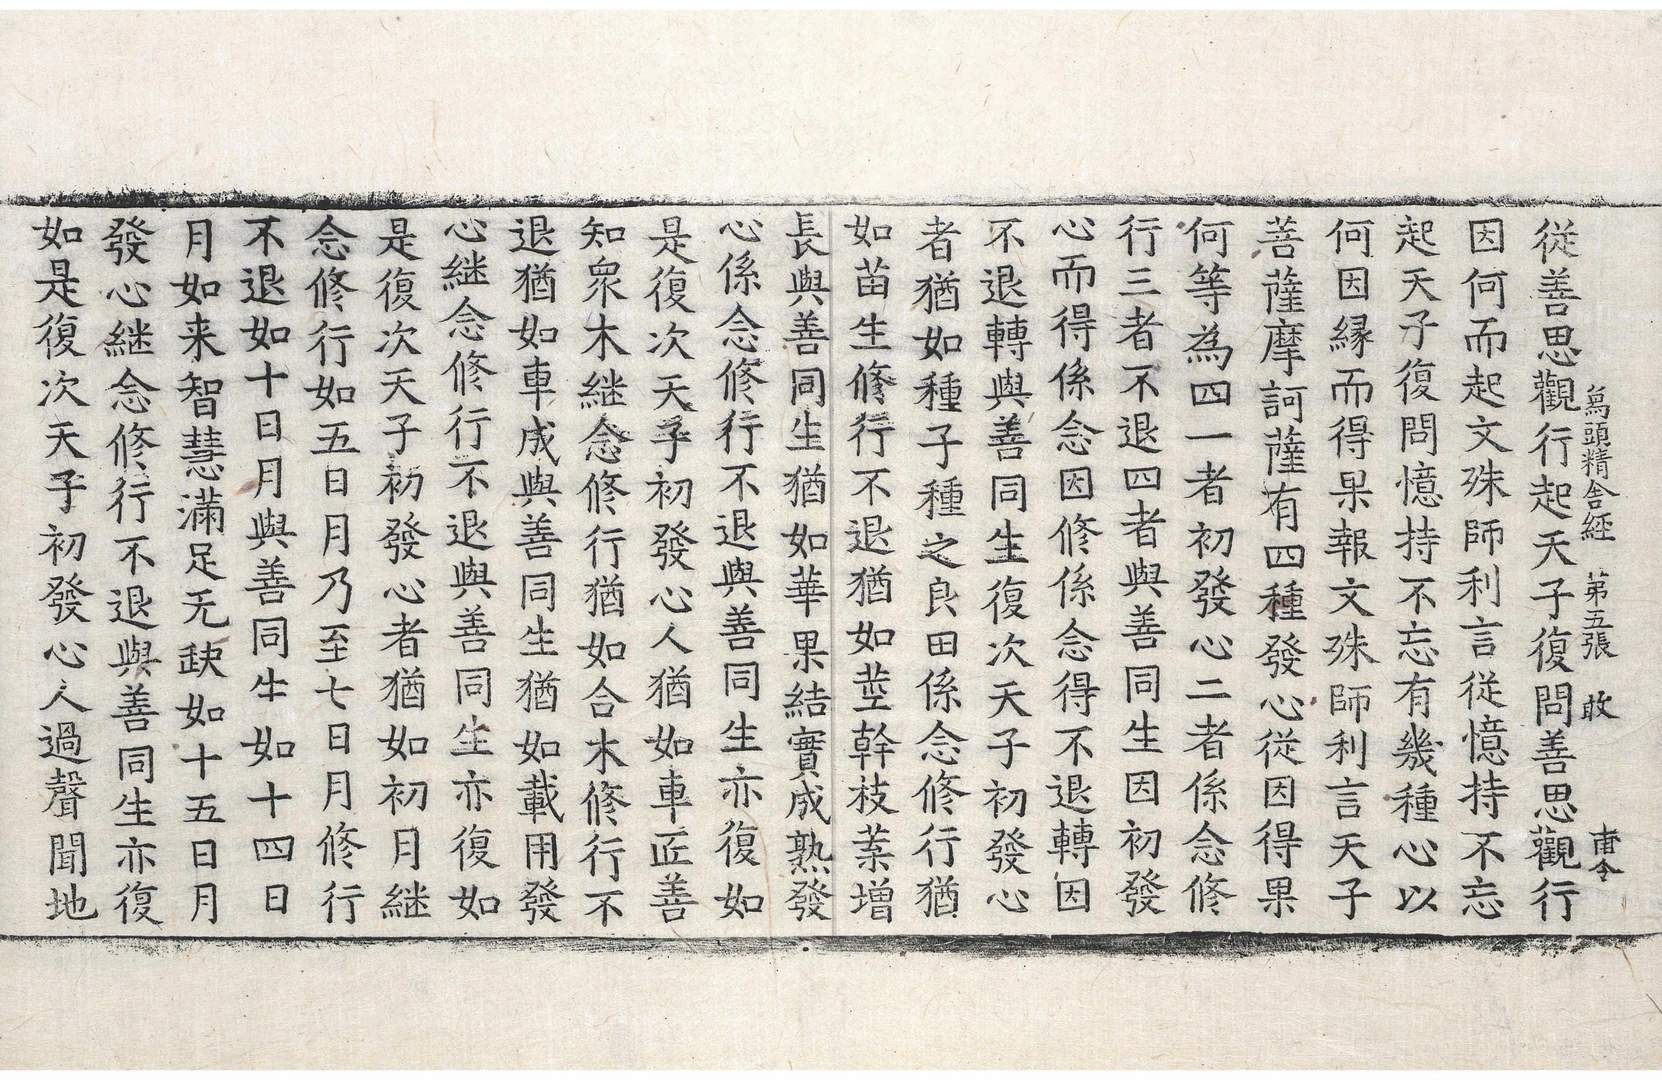 象頭精舍經 第五張 效 甫今
從善思觀行起天子復問善思觀行
因何而起文殊師利言從憶持不忘
起天子復問憶持不忘有幾種心以
何因縁而得果報文殊師利言天子
善薩摩訶薩有四種發心從因得果
何等為四一者初發心二者係念修
行三者不退四者與善同生因初發
心而得係念因修係念得不退轉因
不退轉與善同生復次天子初發心
者猶如種子種之良田係念修行猶
如苗生修行不退猶如莖幹枝葉增
長與善同生猶如華果結實成熟發
心係念修行不退與善同生亦復如
是復次天子初發心人猶如車匠善
知衆木継念修行猶如合木修行不
退猶如車成與善同生猶如載用發
心継念修行不退與善同生亦復如
是復次天子初發心者猶如初月継
念修行如五日月乃至七日月修行
不退如十日月與善同生如十四日
月如来智慧滿足无缺如十五日月
發心継念修行不退與善同生亦復
如是復次天子初發心人過聲聞地